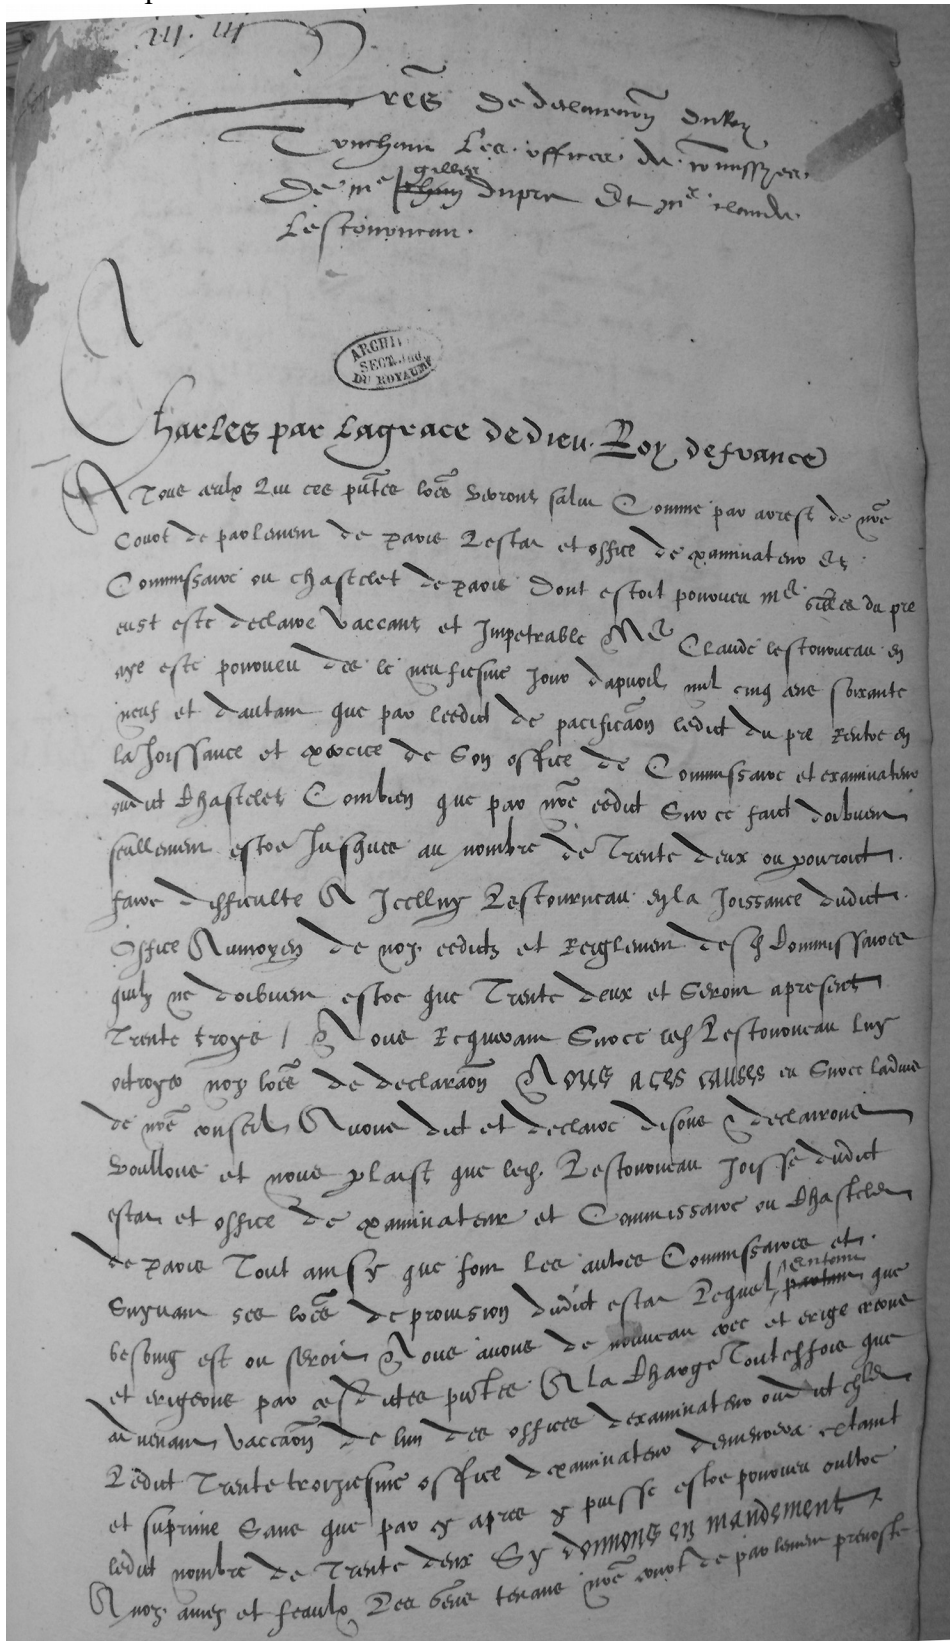 iii. iii
Lres de declaracion du Roy
Touchant les offices de commissaires
gilles
De me Jehan dupre Et me claude
Lestourneau.
ARCHI
SECT. Jud.
DU ROYAUME
Charles par la grace de dieu Roy de france
A Tous ceulx Qui ces pntes lres verront salut Comme par arrest de nre
Court de parlement de paris Lestat et office de examinateur Et
Commissaire ou chastelet de paris dont estoit pourveu me Gilles du pre
eust este declaire vaccant et Impetrable Me Claude lestourneau en
aye este pourveu des le neufiesme Jour dapvril mil cinq cens soixante
neuf et dautant que par leedict de pacificaon ledict du pre Rentre en
la Joissance et exercice de son office de Commissaire et examinateur
oudict Chastelet Combien que par nre eedict Sur ce faict doibvent
seullement estre Jusques au nombre de Trente deux on pouroict
faire difficulte A Icelluy Lestourneau en la Joissance dudict
Office Au moyen de noz eedictz et Reiglement desd Commissaires
quilz ne doibvent estre que Trente deux et seront a present
Trente troys / Nous Requerant Sur ce led Lestourneau luy
octroyer noz lres de declaraon Nous a ces causes eu Sur ce ladvis
de nre conseil Avons dict et declaire disons & declairons
voullons et nous plaist que led. Lestourneau Joisse dudict
estat et office de examinateur et Commissaire ou Chastelet
de paris Tout ainsy que font Les autres Commissaires et
Suyvant ses lres de provision dudict estat Lequel en tant partant que
besoing est ou seroit Nous avons de nouveau cree et erige creons
et erigeons par cesdictes pntes A la Charge Toutesfois que
advenant vaccaon de lun des offices dexaminateur oudict chlet
Ledict Trente troiziesme office dexaminateur demeurera extainct
et suprime Sans que par cy apres y puisse estre pourveu oultre
ledict nombre de Trente deux Sy donnons en mandement
A noz amez et feaulx Les Gens tenans nre court de parlement prevost